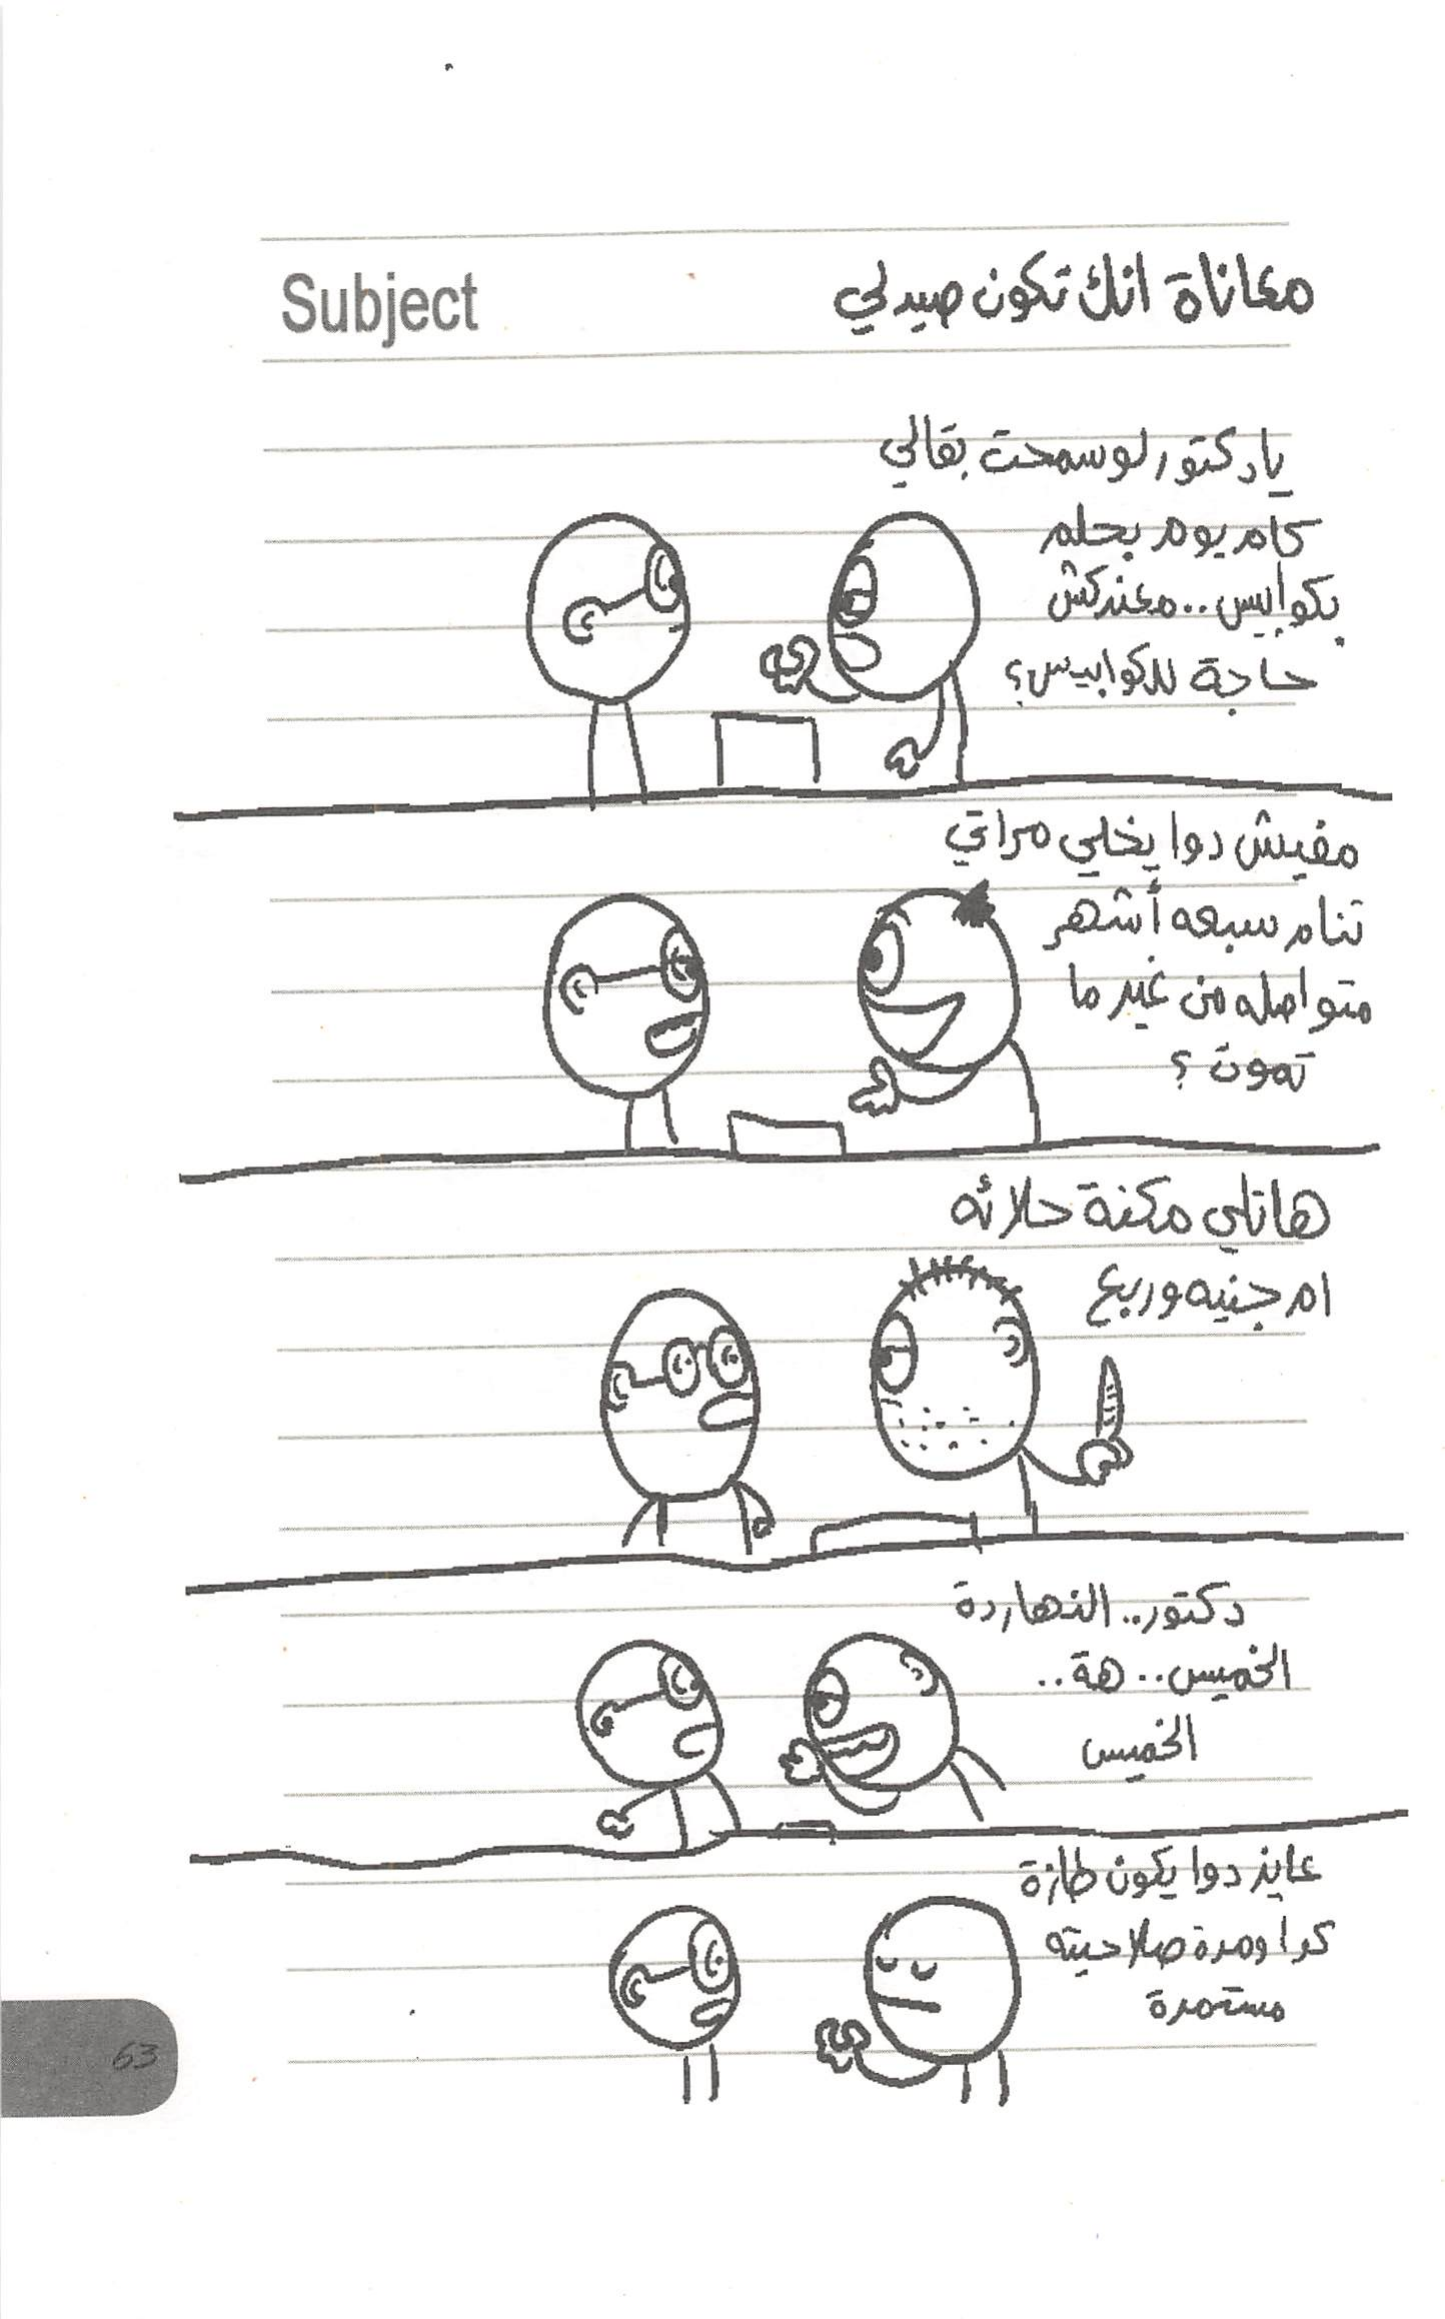 Subject
معاناة انك تكون صيدلي
يا دكتور لو سمحت بقالي
كام يوم بحلم
بكوابيس.. معندكش
حاجة للكوابيس؟
مفيش دوا يخلي مراتي
تنام سبعه أشهر
متواصله من غير ما
تموت؟
هاتلي مكنة حلائه
ام جنيه وربع
دكتور.. النهاردة
الخميس.. هة..
الخميس
عايز دوا يكون طازة
كدا ومدة صلاحيته
مستمرة
63